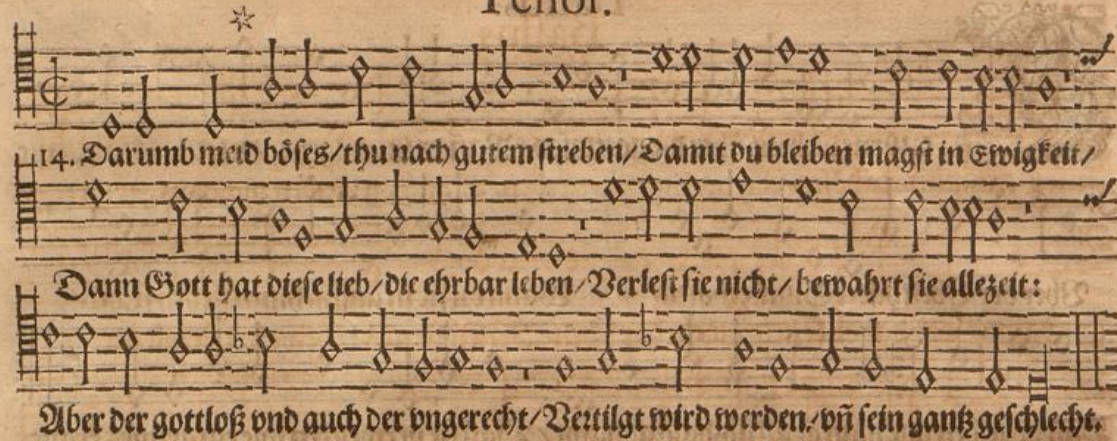 Tenor.
14. Darumb meid böses/thu nach gutem streben/Damit du bleiben magst in Ewigkeit/
Dann Gott hat diese lieb/die ehrbar leben/Verlest sie nicht/bewahrt sie allezeit:
Aber der gottloß vnd auch der vngerecht/Vertilgt wird werden/vñ sein gantz geschlecht.